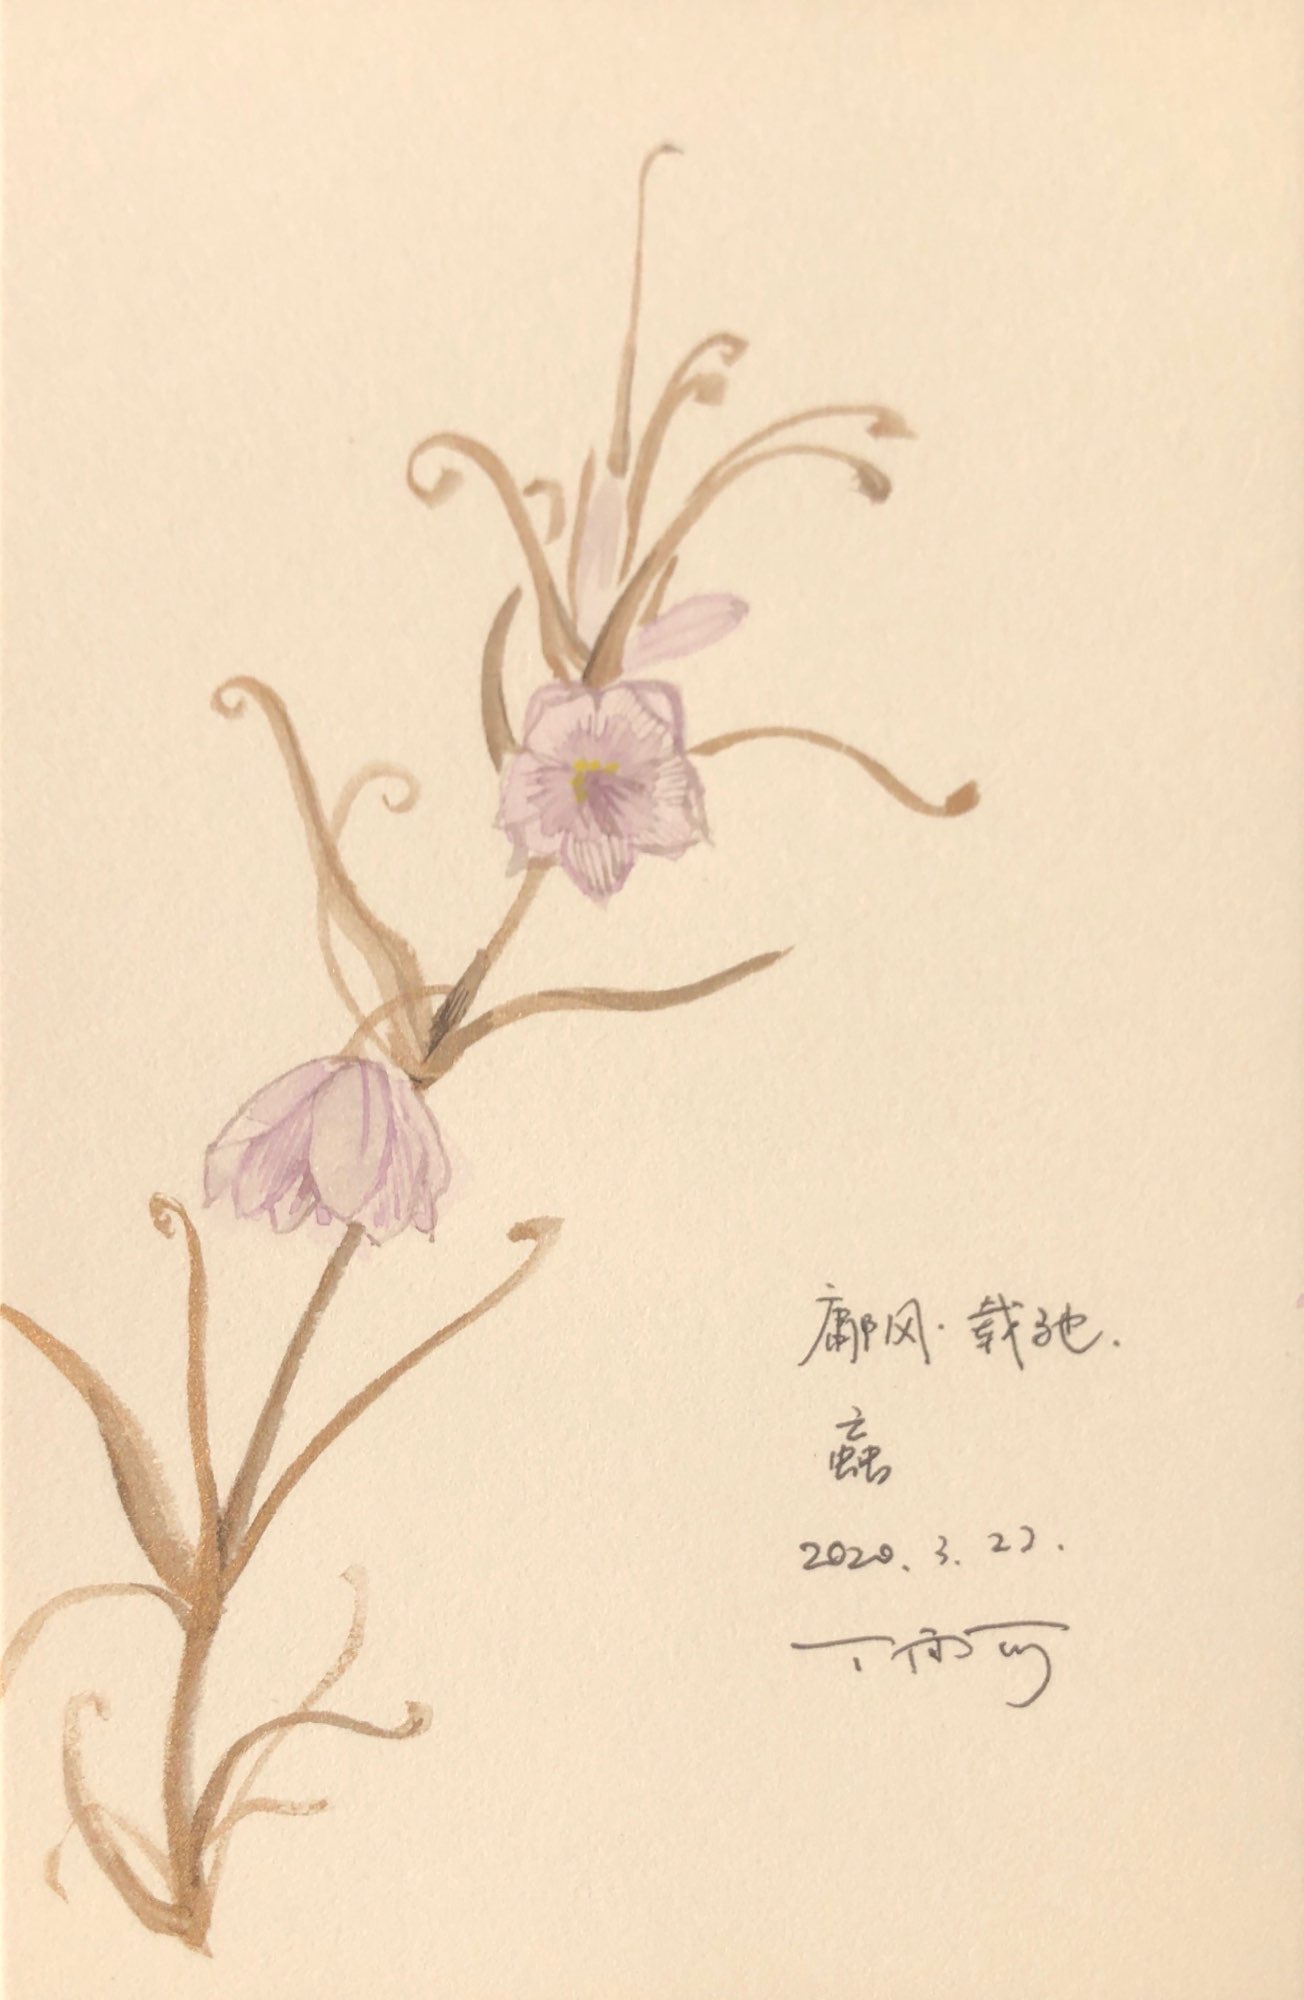 鄘风·载驰.
蝱
2020.3.23.
丁雨可